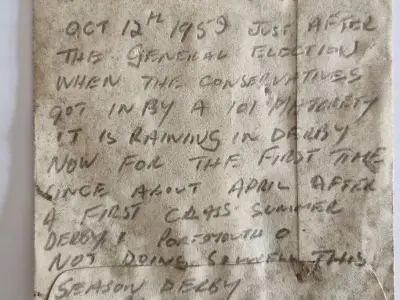 OCT 12TH 1959 JUST AFTER
THE GENERAL ELECTION
WHEN THE CONSERVATIVES
GOT IN BY A 101 MAJORETY
IT IS RAINING IN DERBY
NOW FOR THE FIRST TIME
SINCE ABOUT APRIL AFTER
A FIRST CLASS SUMMER
DERBY 1 PORTSMOUTH 0
NOT DOING SO WELL THIS
SEASON DERBY